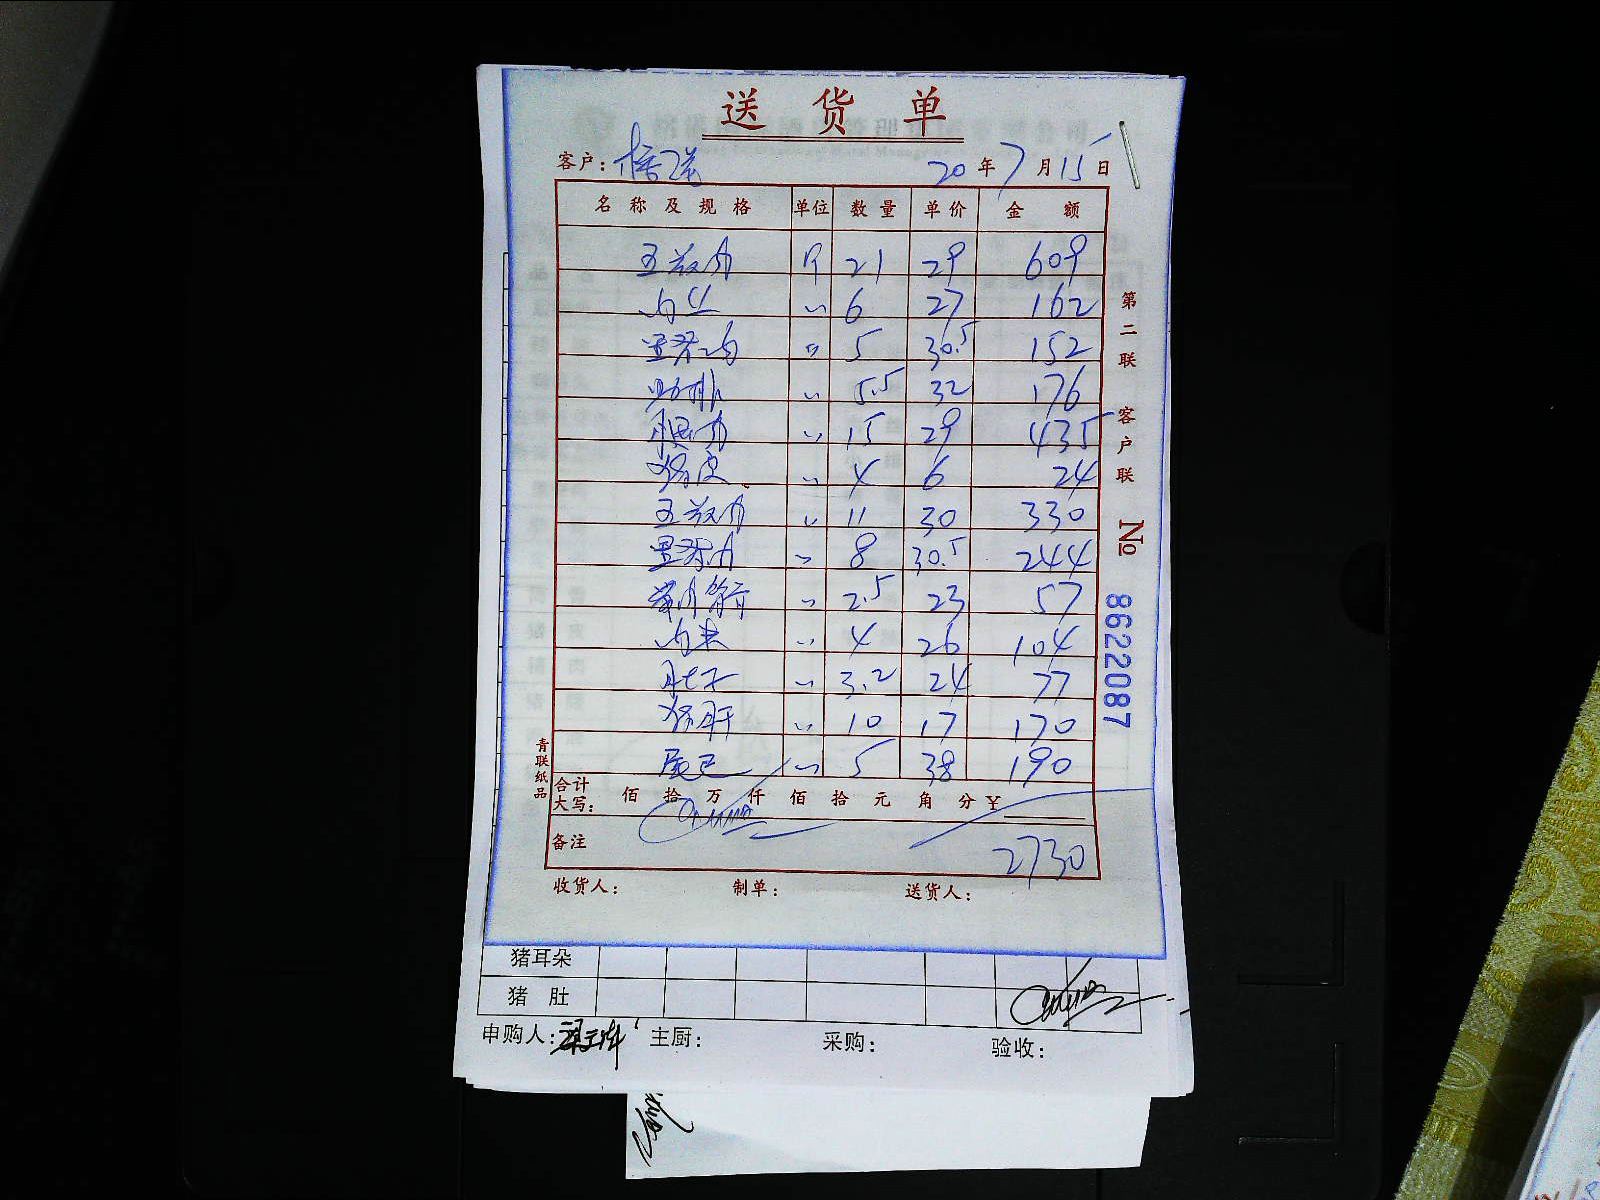 送货单
客户: 20年7月15日
名称及规格 单位 数量 单价 金额
五花肉 斤 21 29 609
肉丝 〃 6 27 162
〃 5 30.5 152
肋排 〃 5.5 32 176
腿肉 〃 15 29 435
猪皮 〃 4 6 24
五花肉 〃 11 30 330
〃 8 30.5 244
〃 2.5 23 57
肉末 〃 4 26 104
肚子 〃 3.2 24 77
猪肝 〃 10 17 170
尾巴 〃 5 38 190
合计大写: 佰 拾 万 仟 佰 拾 元 角 分 ¥
备注 2730
收货人: 制单: 送货人:
第二联 客户联 № 8622087
青联纸品
猪耳朵
猪肚
申购人: 主厨: 采购: 验收: